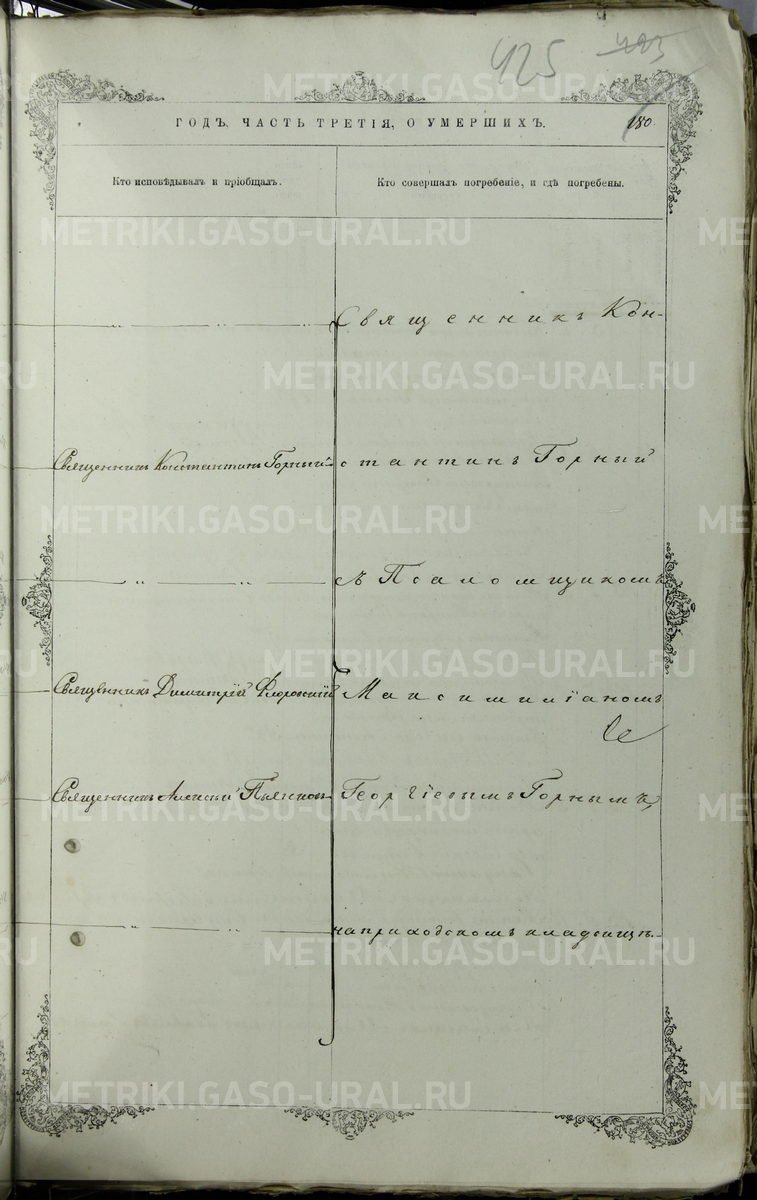 425 423
ГОДЪ, ЧАСТЬ ТРЕТІЯ, О УМЕРШИХЪ. 180
Кто исповѣдывалъ и пріобщалъ. Кто совершалъ погребеніе, и гдѣ погребены.
Священникъ Кон-
Священникъ Константинъ Горный стантинъ Горный
съ Псаломщикомъ
Священникъ Димитрій Флоровскій Максимиліаномъ
Священникъ Алексій Пьянковъ Георгіевымъ Горнымъ,
на приходскомъ кладбищѣ.
METRIKI.GASO-URAL.RU